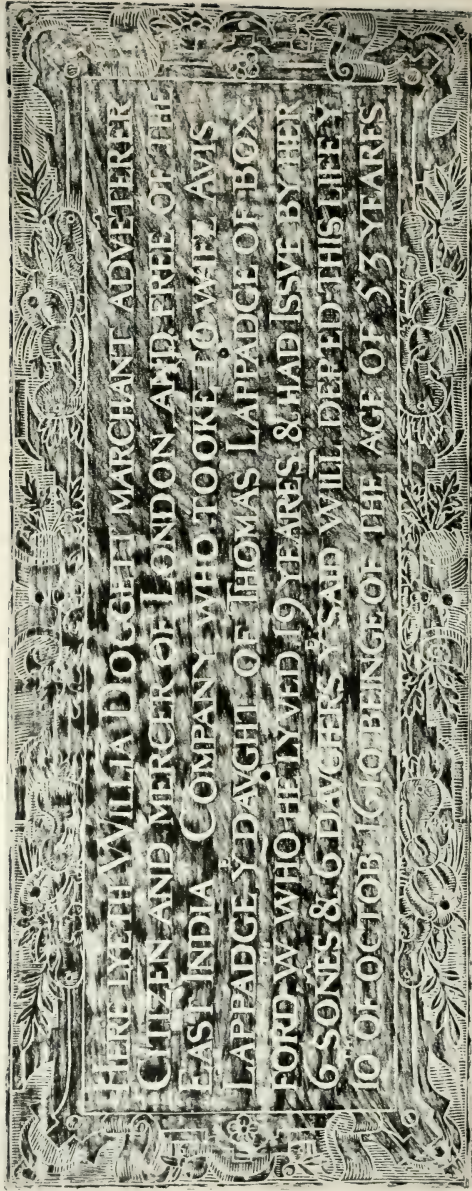 HERE LYETH WILLIĀ DOGGETT MARCHANT ADVĒTERER
CITIZEN AND MERCER OF LONDON AND FREE OF THE
EAST INDIA COMPANY WHO TOOKE TO WIFE AVIS
LAPPADGE Yᴱ DAVGHᵗ OF THOMAS LAPPADGE OF BOX-
FORD Wᵀᴴ WHO HE LYVED 19 YEARES & HAD ISSVE BY HER
6 SONES & 6 DAVGHERS Yᴱ SAID WILL̄ DEP̄ED THIS LIFE Yᴱ
10ᵀᴴ OF OCTOB 1610 BEINGE OF THE AGE OF 53 YEARES